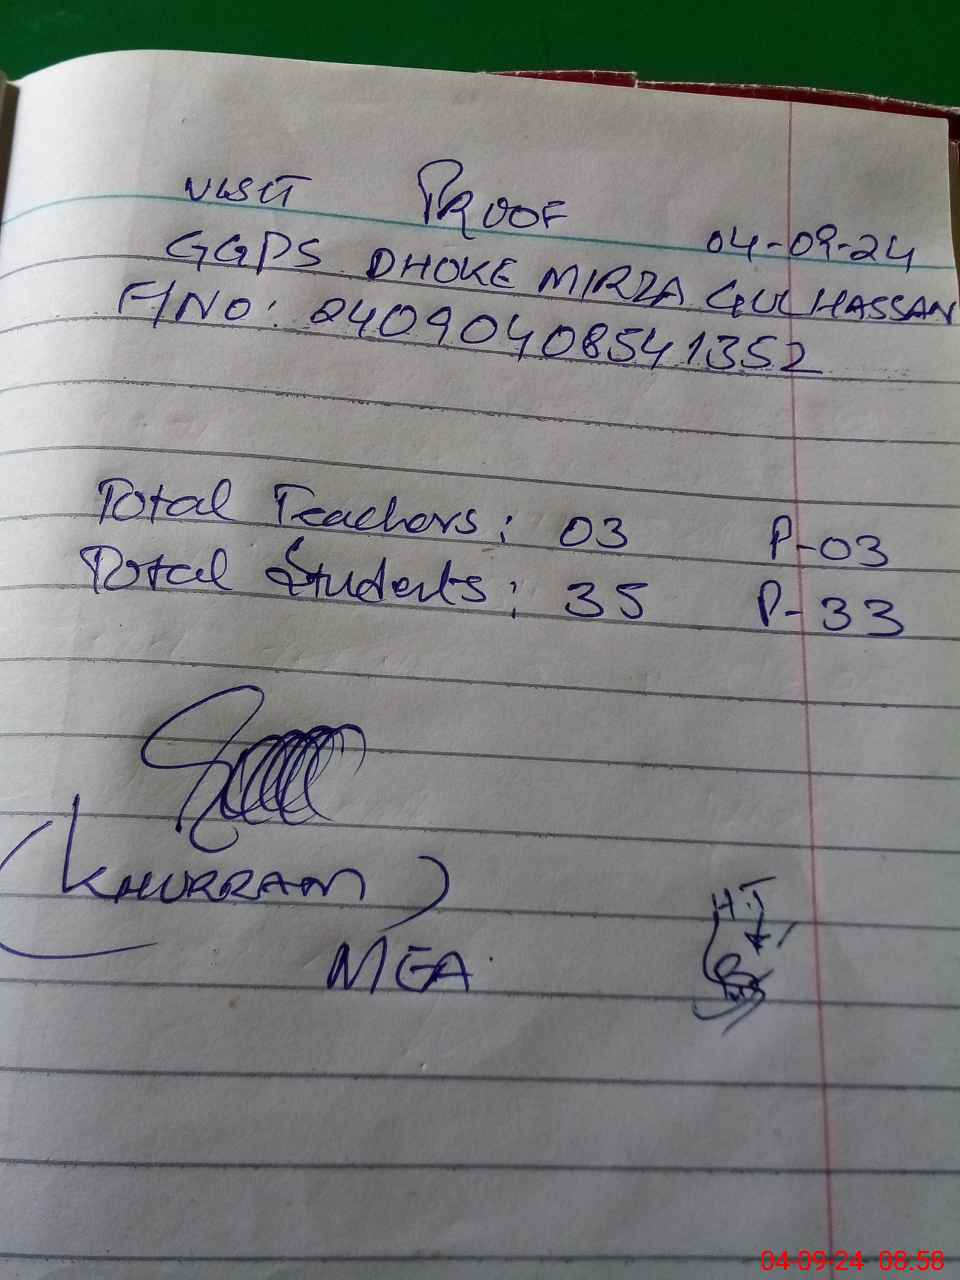 VISIT PROOF 04-09-24
GGPS DHOKE MIRZA GUL HASSAN
F/NO: 24090408541352
Total Teachers: 03 P-03
Total Students: 35 P-33
(KHURRAM)
MEA
H.T
04-09-24 08:58